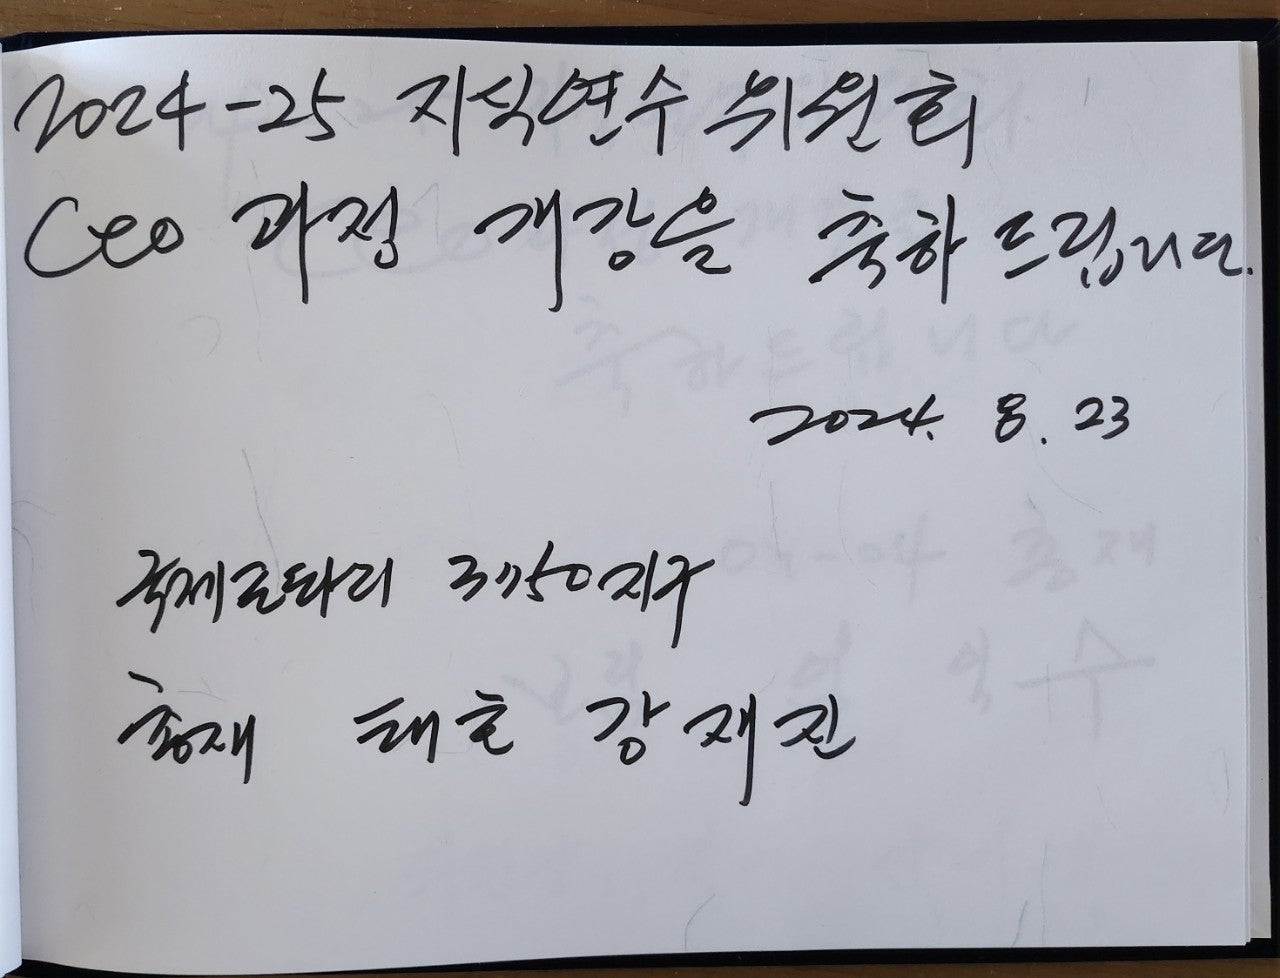 2024-25 지식연수 위원회
CEO 과정 개강을 축하드립니다.
2024. 8. 23
국제로타리 3750지구
총재 태호 강재진